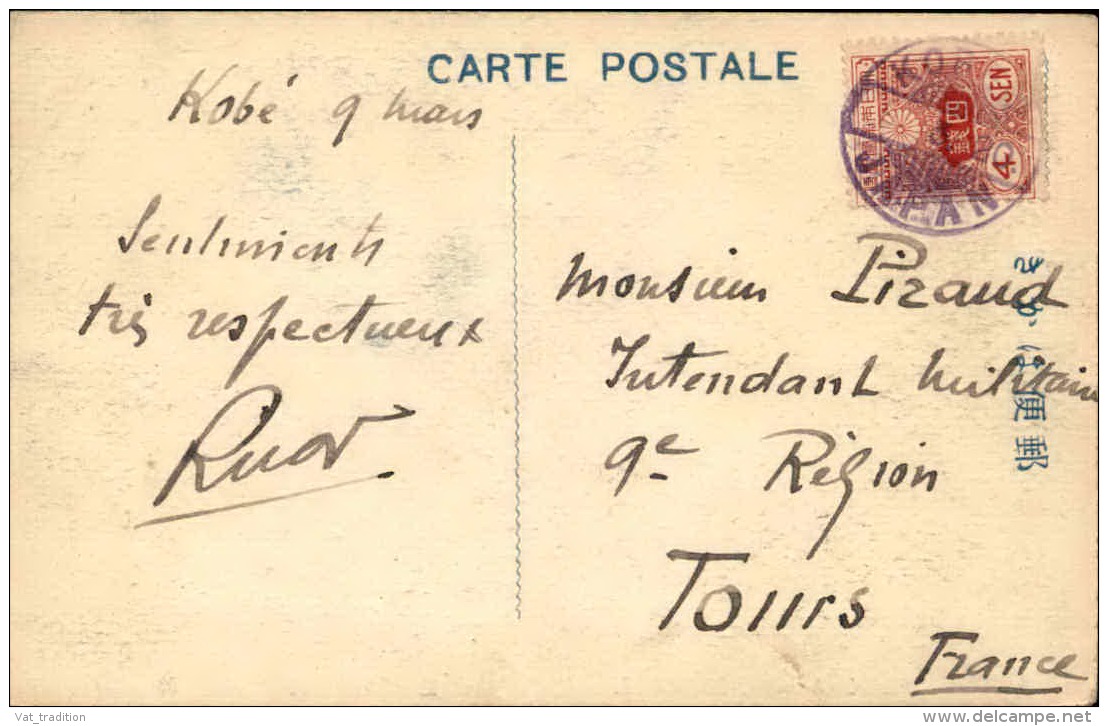 CARTE POSTALE
Kobé 9 mars
Sentiments
très respectueux
4 SEN
四
錢
JAPAN
Monsieur Piraud
Intendant militaire
9e Région
Tours
France
郵便はかき
Vat_tradition
www.delcampe.net